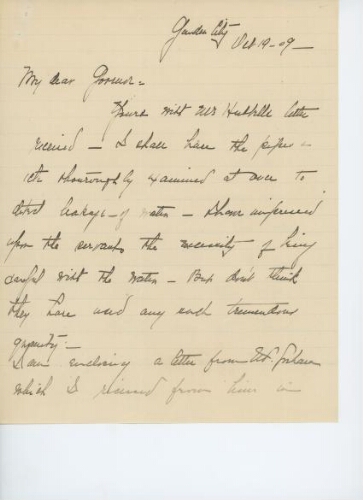 Garden City
Oct 19 - 09 -
My dear Governor -
Yours with Mr Hubbells letter
received - I shall have the pipes -
etc thouroughly examined at once to
detect leakage - of water - I have impressed
upon the servants the necessity of being
careful with the water - But don't think
they have used any such tremendous
quantity. -
I am enclosing a letter from
which I received from him in